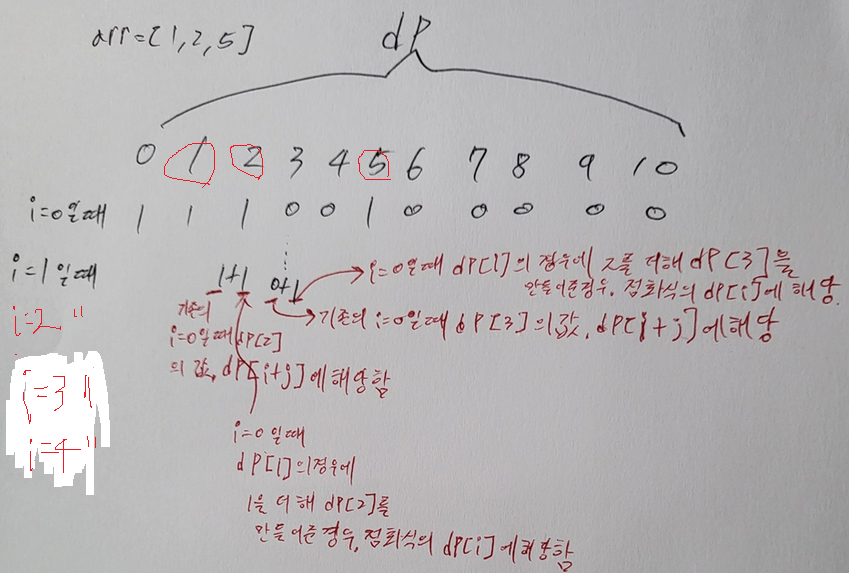 arr=[1,2,5]
dP
0 1 2 3 4 5 6 7 8 9 10
i=0일때 1 1 1 0 0 1 0 0 0 0 0
i=1일때 1+1 0+1
i=2 "
i=3 "
i=4 "
i=0일때 dP[1]의 경우에 2를 더해 dP[3]을
만들어준경우, 점화식의 dP[i]에 해당.
기존의 i=0일때 dP[3]의 값, dP[i+j]에 해당
기존의
i=0일때 dP[2]
의 값, dP[i+j]에 해당함
i=0일때
dP[1]의경우에
1을 더해 dP[2]를
만들어준경우, 점화식의 dP[i]에 해당함